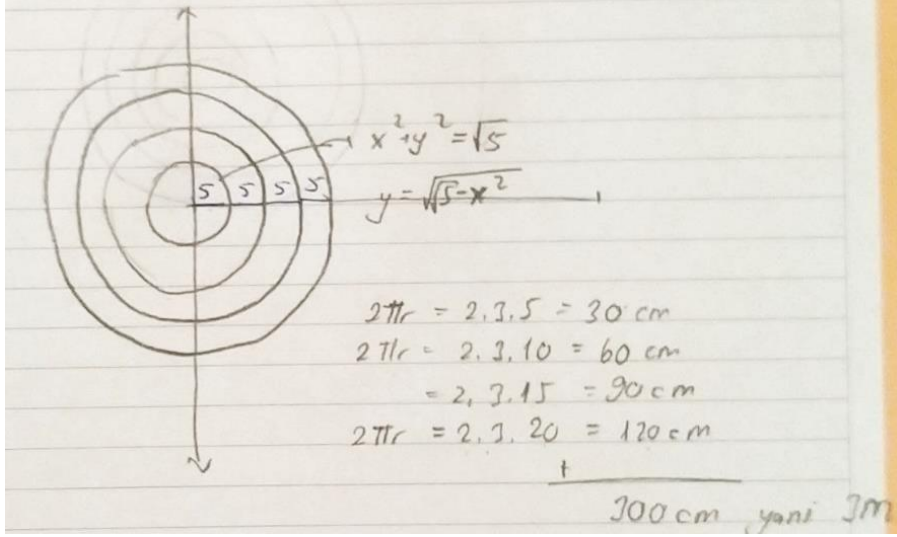 x²+y²=√5
5 5 5 5
y=√√5-x²
2πr = 2.3.5 = 30 cm
2πr = 2.3.10 = 60 cm
= 2.3.15 = 90 cm
2πr = 2.3.20 = 120 cm
+
300 cm yani 3m